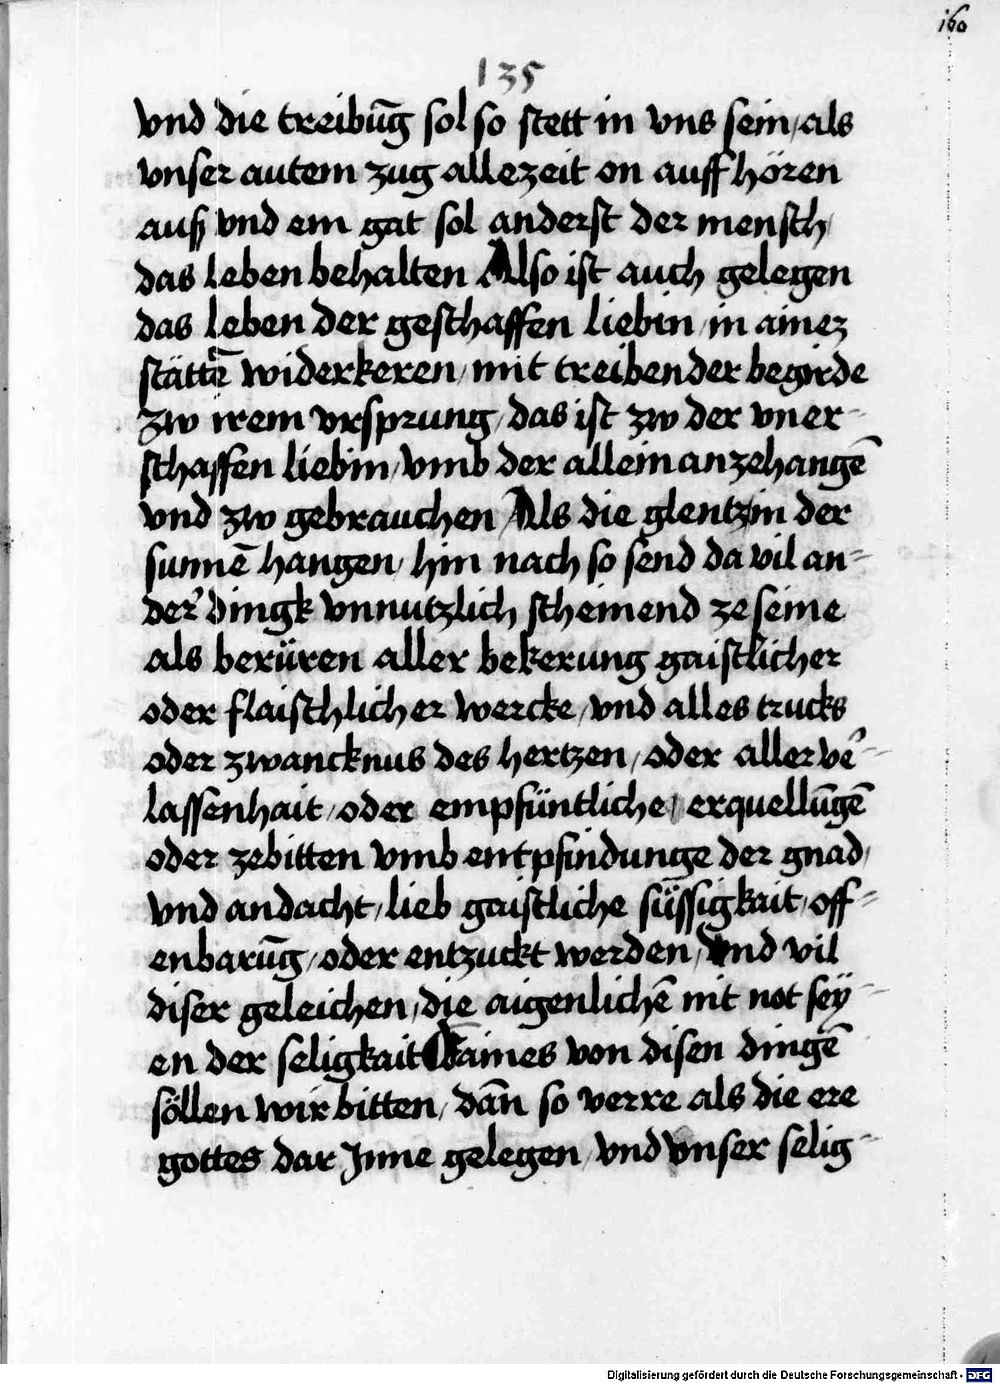 160
135
vnd die treibūg sol so stett in vns sein / als
vnser autem zug allezeit on auff hören
auß vnd em gat sol anderst der mensch /
das leben behalten Also ist auch gelegen
das leben der geschaffen liebin / in ainez
stättē widerkeren / mit treibender begirde
zw irem vrsprung / das ist zw der vner-
schaffen liebin / vmb der allein anzehangē
vnd zw gebrauchen Als die glentzin der
sunnē hangen / hin nach so send da vil an-
der' dingk vnnutzlich scheinend ze seine
als berüren aller bekerung gaistlicher
oder flaischlicher wercke / vnd alles trucks
oder zwancknus des hertzen / oder aller ve'-
lassenhait / oder empfüntliche / erquellūgē
oder zebitten vmb entpfindunge der gnad /
vnd andacht / lieb gaistliche süssigkait / off-
enbarūg / oder entzuckt werden / vnd vil
diser geleichen / die aigenlichē nit not sey-
en der seligkait Daines von disen dingē
söllen wir bitten / dān so verre als die ere
gottes dar Jnne gelegen / vnd vnser selig-
Digitalisierung gefördert durch die Deutsche Forschungsgemeinschaft - DFG